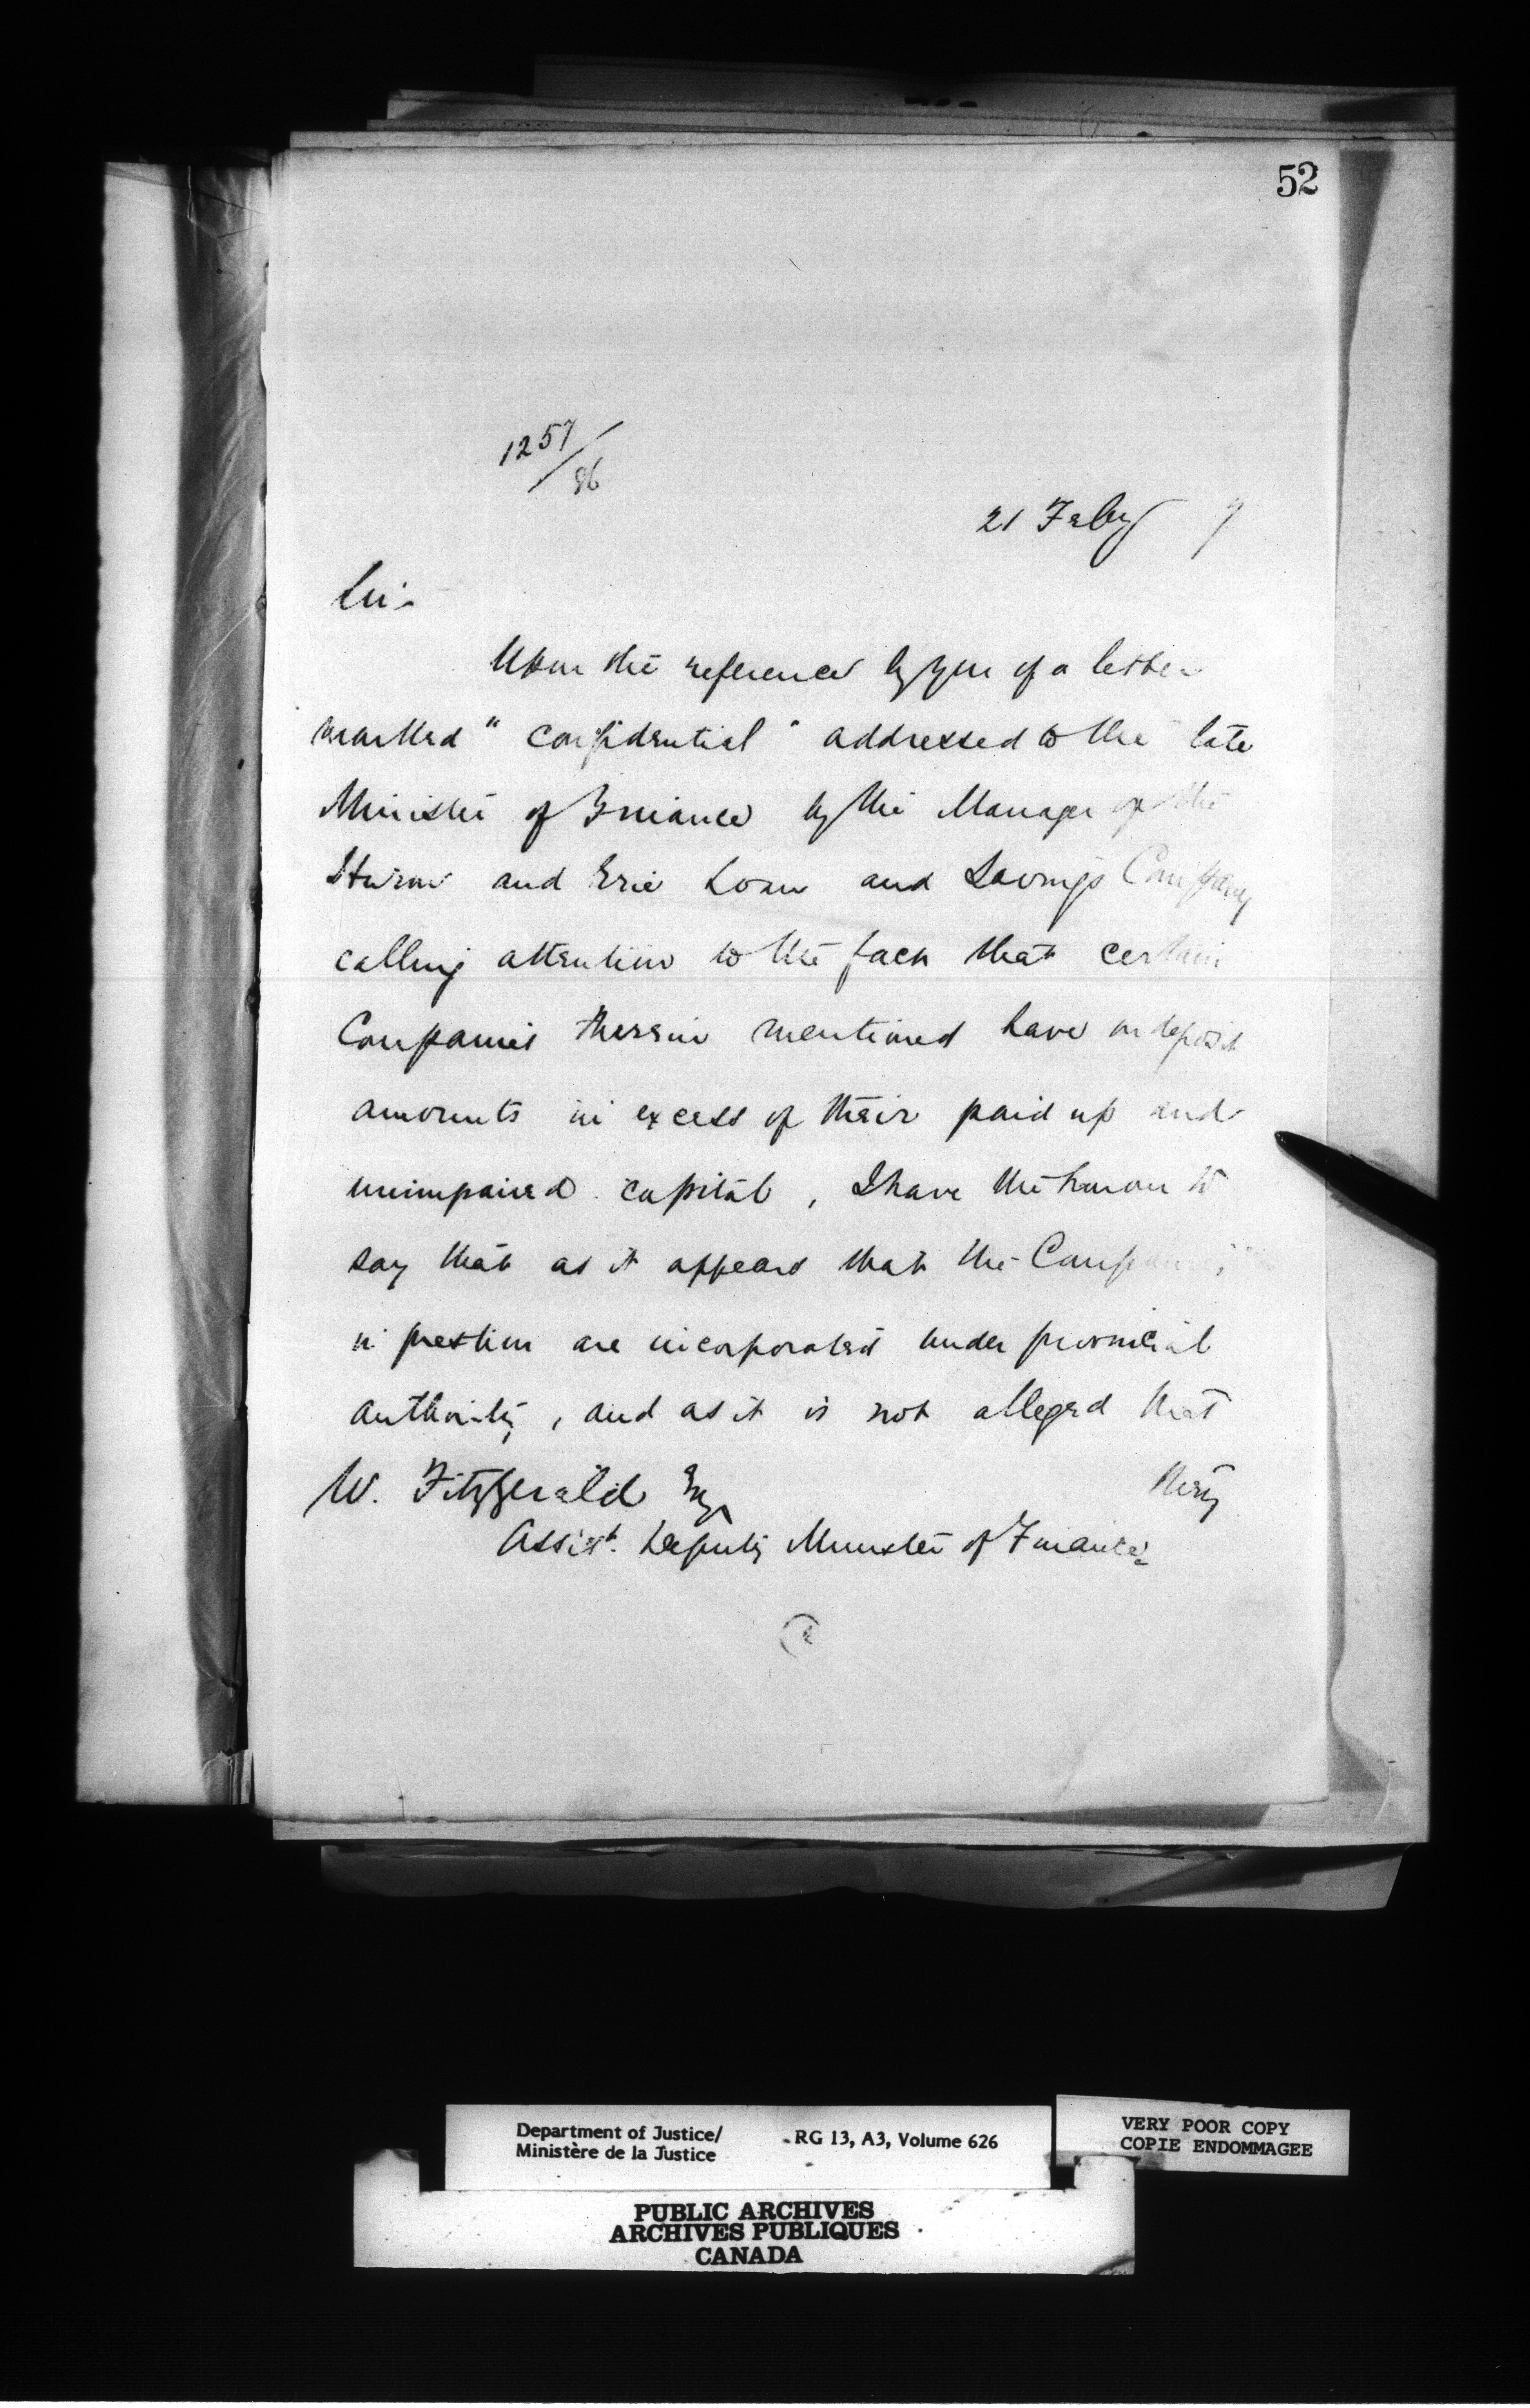 52
1257/86
21 Feby 7
Sir
Upon the reference by you of a letter
marked "confidential" addressed to the late
Minister of Finance by the Manager of the
Huron and Erie Loan and Savings Company
calling attention to the fact that certain
Companies therein mentioned have on deposit
amounts in excess of their paid up and
unimpaired capital, I have the honour to
say that as it appears that the Companies
in question are incorporated under provincial
authority, and as it is not alleged that
they
W. Fitzgerald Esq
Assist. Deputy Minister of Finance
Department of Justice/ RG 13, A3, Volume 626
Ministère de la Justice
VERY POOR COPY
COPIE ENDOMMAGEE
PUBLIC ARCHIVES
ARCHIVES PUBLIQUES
CANADA